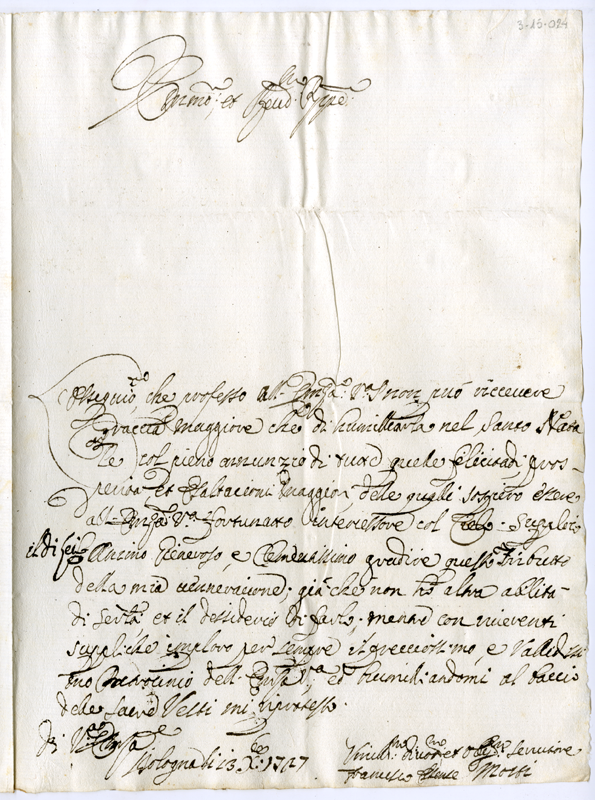 3-15-024
Em̃mo: et Reud.mo Prñpe:
Ossequio, che professo all' Em̃za: Va. non può riceuere
gracia maggiore che di humiliarla nel Santo Nata
le col pieno annunzio di tute quelle felicità di pros-
perità et Esaltacioni maggior delle quali sospiro essere
all' Em̃za: Va. fortunato intercessore col Cielo. Supplico
il di lei Animo Generoso, e Clementissimo gradire questo Tributo
della mia ueneracione; già che non hò altra abilita-
di seruirla et il desiderio di farlo; mentre con riuerenti
suppliche imploro per sempre il grecciosissimo, e Vallidissi
mo Patrocinio dell' Em̃za: Va. et humiliandomi al baccio
delle Sacre Vesti mi riprotesto.
Di Va. Em̃za
Bologna li 13 Xbre 1727
Humil.mo Diuot.mo et Obl.mo Seruitore
Francesco Monti